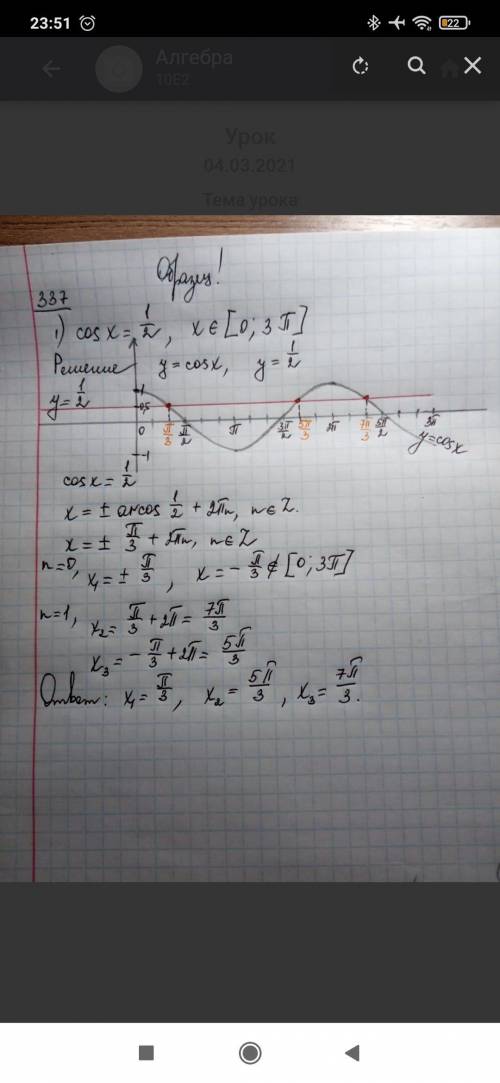 23:51
22
Алгебра
10Е2
Урок
04.03.2021
Тема урока
Образец!
337
1) cos x = 1/2, x ∈ [0; 3π]
Решение y = cos x, y = 1/2
y = 1/2
1
0,5
0 π/3 π/2 π 3π/2 5π/3 2π 7π/3 5π/2 3π
-1
y = cos x
cos x = 1/2
x = ± arccos 1/2 + 2πn, n ∈ Z.
x = ± π/3 + 2πn, n ∈ Z
n=0, x₁ = ± π/3, x = - π/3 ∉ [0; 3π]
n=1, x₂ = π/3 + 2π = 7π/3
x₃ = - π/3 + 2π = 5π/3
Ответ: x₁ = π/3, x₂ = 5π/3, x₃ = 7π/3.